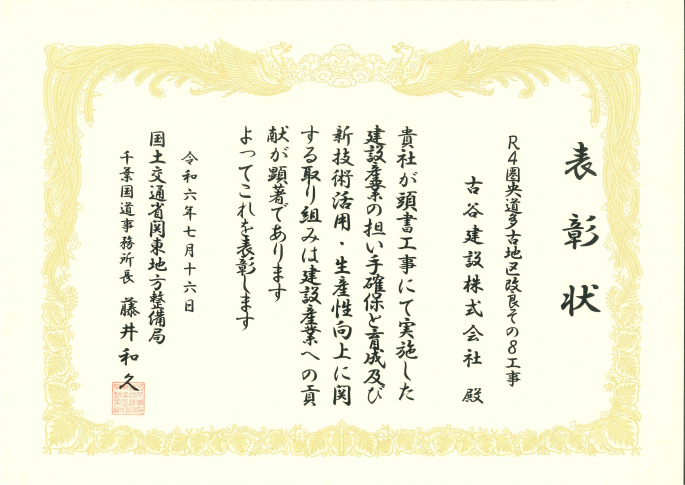 表彰状
R4圏央道多古地区改良その8工事
古谷建設株式会社 殿
貴社が頭書工事にて実施した
建設産業の担い手確保と育成及び
新技術活用・生産性向上に関
する取り組みは建設産業への貢
献が顕著であります
よってこれを表彰します
令和六年七月十六日
国土交通省関東地方整備局
千葉国道事務所長 藤井和久